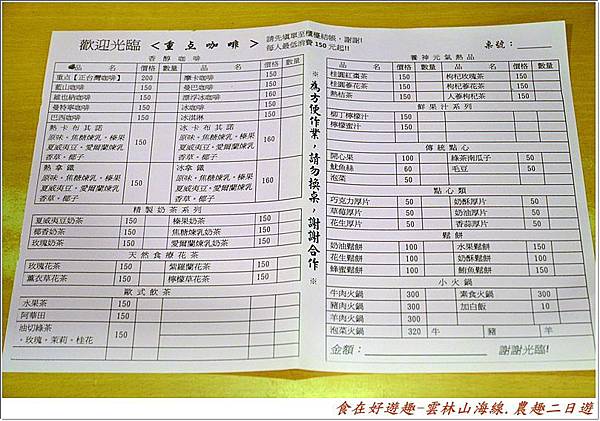 歡迎光臨 ＜重点咖啡＞ 請先填單至櫃檯結帳，謝謝!
每人最低消費150元起!!
桌號：
香醇咖啡
品名 價格 數量 品名 價格 數量
重点【正台灣咖啡】 200 摩卡咖啡 150
藍山咖啡 150 曼巴咖啡 150
維也納咖啡 150 漂浮冰咖啡 160
曼特寧咖啡 150 冰咖啡 150
巴西咖啡 150 冰淇淋 150
熱卡布其諾 150 冰卡布其諾 160
原味。焦糖煉乳。榛果 原味。焦糖煉乳。榛果
夏威夷豆。愛爾蘭煉乳 夏威夷豆。愛爾蘭煉乳
香草。椰子 香草。椰子
熱拿鐵 150 冰拿鐵 160
原味。焦糖煉乳。榛果 原味。焦糖煉乳。榛果
夏威夷豆。愛爾蘭煉乳 夏威夷豆。愛爾蘭煉乳
香草。椰子 香草。椰子
精製奶茶系列
夏威夷豆奶茶 150 榛果奶茶 150
椰香奶茶 150 焦糖煉乳奶茶 150
玫瑰奶茶 150 愛爾蘭煉乳奶茶 150
天然食療花茶
玫瑰花茶 150 紫羅蘭花茶 150
薰衣草花茶 150 檸檬草花茶 150
歐式飲茶
水果茶 150
阿華田 150
油切綠茶 150
。玫瑰。茉莉。桂花
※為方便作業，請勿換桌，謝謝合作※
養神元氣熱品
品名 價格 數量 品名 價格 數量
桂圓紅棗茶 150 枸杞玫瑰茶 150
桂圓蔘花茶 150 枸杞蔘花茶 150
熱桔茶 150 人蔘枸杞茶 150
鮮果汁系列
柳丁檸檬汁 150
檸檬蜜汁 150
傳統點心
開心果 100 綠茶南瓜子 50
魷魚絲 60 毛豆 50
泡菜 50
點心類
巧克力厚片 50 奶酥厚片 50
草莓厚片 50 奶油厚片 50
花生厚片 50 香蒜厚片 50
鬆餅
奶油鬆餅 100 水果鬆餅 150
花生鬆餅 100 奶酥鬆餅 100
蜂蜜鬆餅 100 鮪魚鬆餅 150
小火鍋
牛肉火鍋 300 素食火鍋 300
豬肉火鍋 300 加白飯 10
羊肉火鍋 300
泡菜火鍋 320 牛 豬 羊
金額： 謝謝光臨!
食在好遊趣-雲林山海線.農趣二日遊